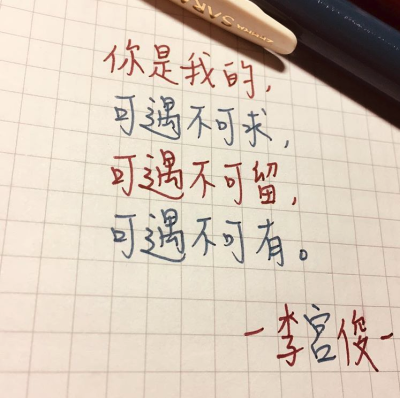 你是我的，
可遇不可求，
可遇不可留，
可遇不可有。
-李宮俊-